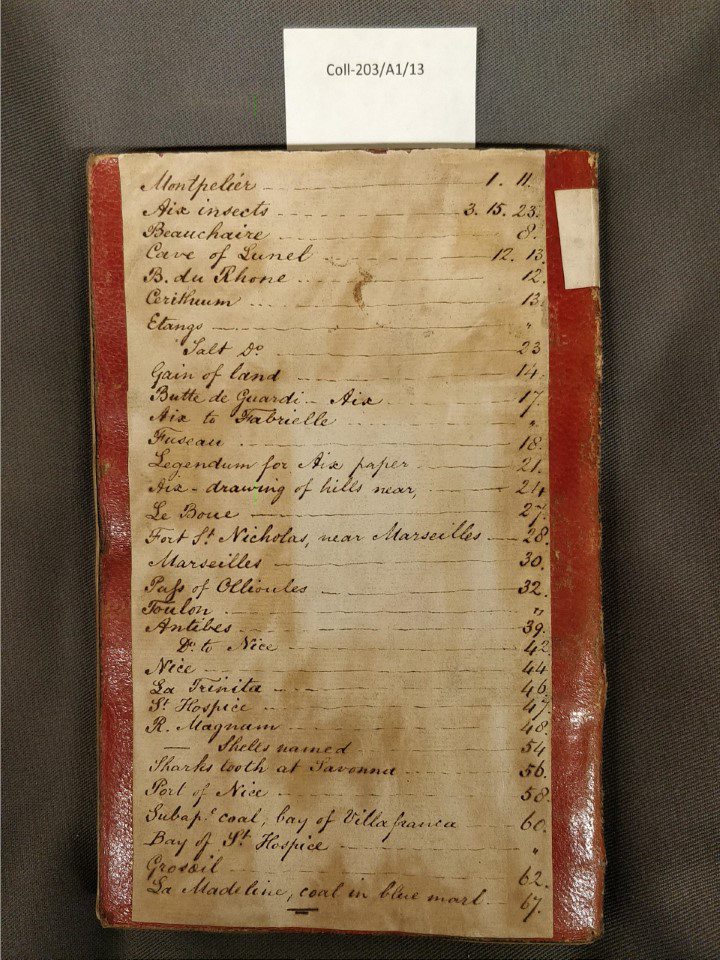 Coll-203/A1/13
Montpelier 1. 11.
Aix insects 3. 15. 23.
Beauchaire 8.
Cave of Lunel 12. 13.
B. du Rhone 12.
Cerithium 13.
Etangs "
Salt Do. 23
Gain of land 14.
Butte de Guardi - Aix 17.
Aix to Fabrielle "
Fuseau 18.
Legendum for Aix paper 21.
Aix - drawing of hills near, 24.
Le Bouc 27.
Fort St. Nicholas, near Marseilles 28.
Marseilles 30.
Pass of Ollioules 32.
Toulon "
Antibes 39.
Do. to Nice 42.
Nice 44
La Trinita 46.
St. Hospice 47.
R. Magnam 48.
— Shells named 54
Sharks tooth at Savonna 56.
Port of Nice 58.
Subap. coal, bay of Villafranca 60.
Bay of St. Hospice "
Groseil 62.
La Madeline, coal in blue marl 67.